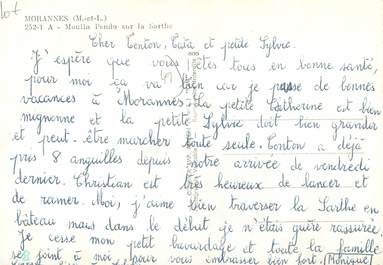 lot
MORANNES (M.-et-L.)
252-1 A - Moulin Pendu sur la Sarthe
Cher Tonton, Tata et petite Sylvie.
J'espère que vous êtes tous en bonne santé,
pour moi ça va bien car je passe de bonnes
vacances à Morannes. La petite Catherine est bien
mignonne et la petite Sylvie doit bien grandir
et peut-être marcher toute seule. Tonton a déjà
pris 8 anguilles depuis notre arrivée de vendredi
dernier. Christian est très heureux de lancer et
de ramer. Moi, j'aime bien traverser la Sarthe en
bâteau mais dans le début je n'étais guère rassurée.
Je cesse mon petit bavardage et toute la famille
se joint à moi pour vous embrasser bien fort. (Monique)